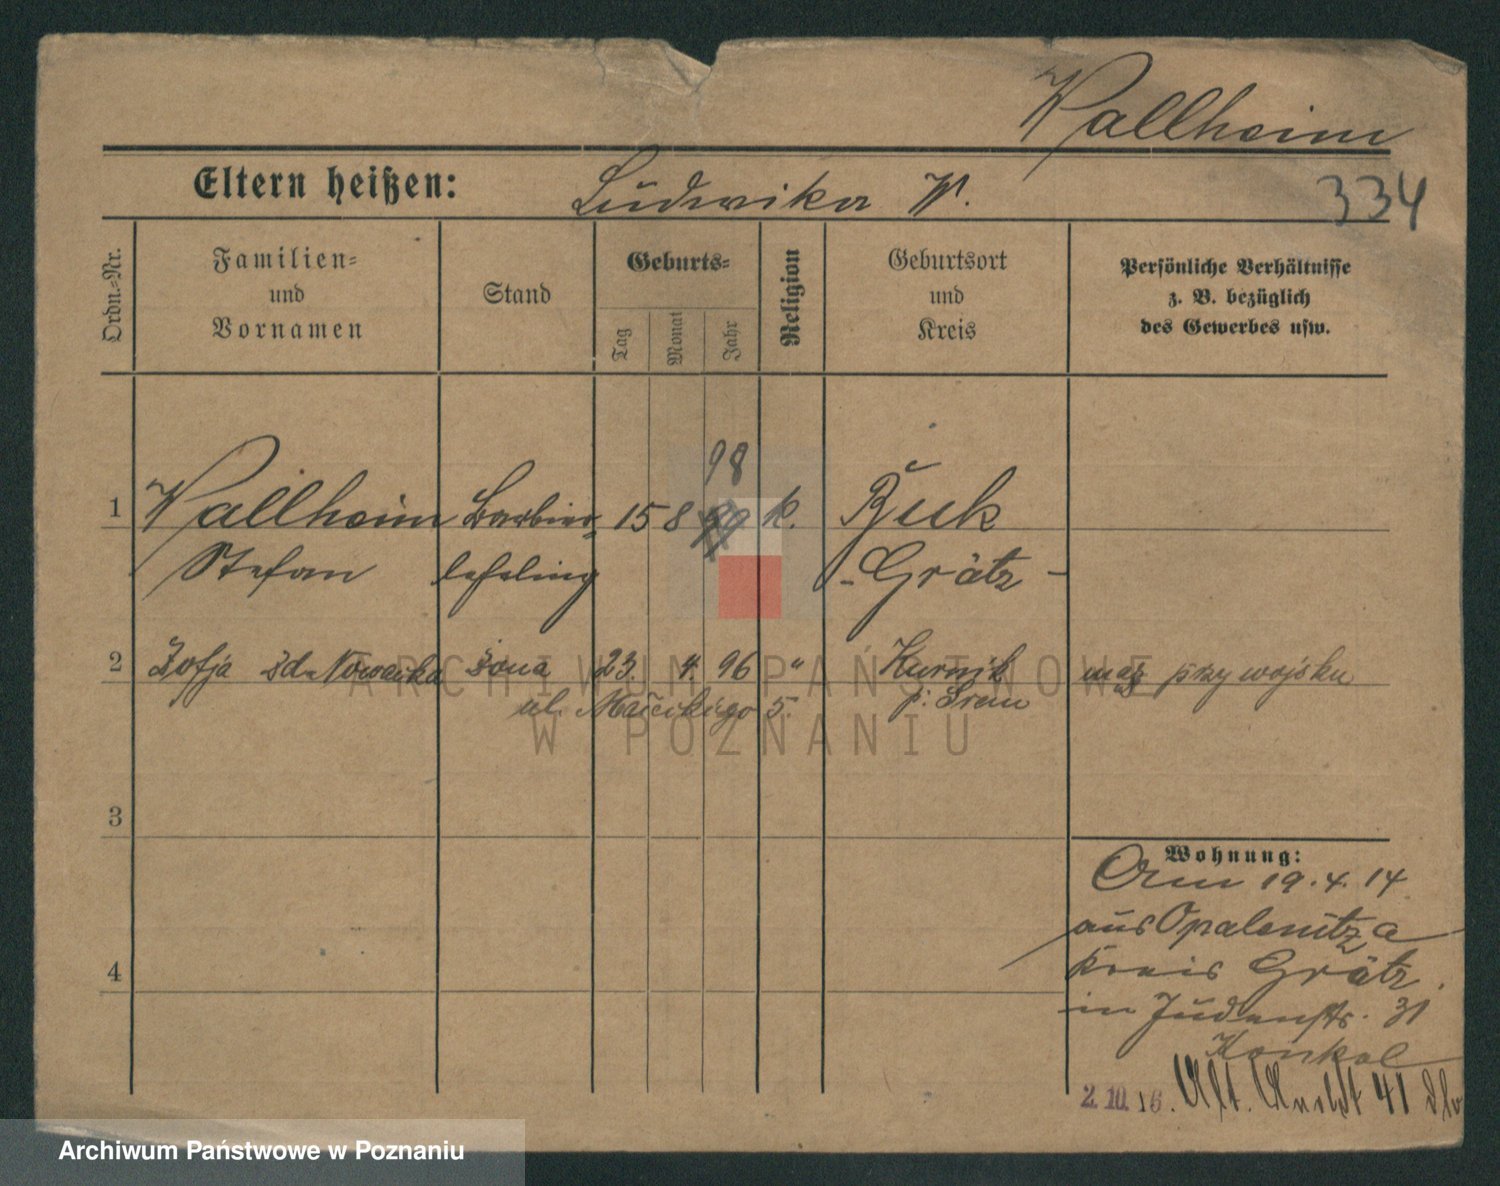 Wallheim
Eltern heißen: Ludwika W. 334
Ordn.-Nr.
Familien-
und
Vornamen
Stand
Geburts-
Tag
Monat
Jahr
Religion
Geburtsort
und
Kreis
Persönliche Verhältnisse
z. B. bezüglich
des Gewerbes usw.
98
1 Wallheim Barbier- 15 8 k. Buk
Stefan lehrling - Grätz -
2 Zofja zd. Nowacka żona 23. 4. 96 " Kurnik mąż przy wojsku
ul. 5. p. Śrem
3
4
Wohnung:
Am 19.4.14
aus Opalenitza
Kreis Grätz.
in Judenstr. 31
Konkol
2.10.16. 41
ARCHIWUM PAŃSTWOWE
W POZNANIU
Archiwum Państwowe w Poznaniu